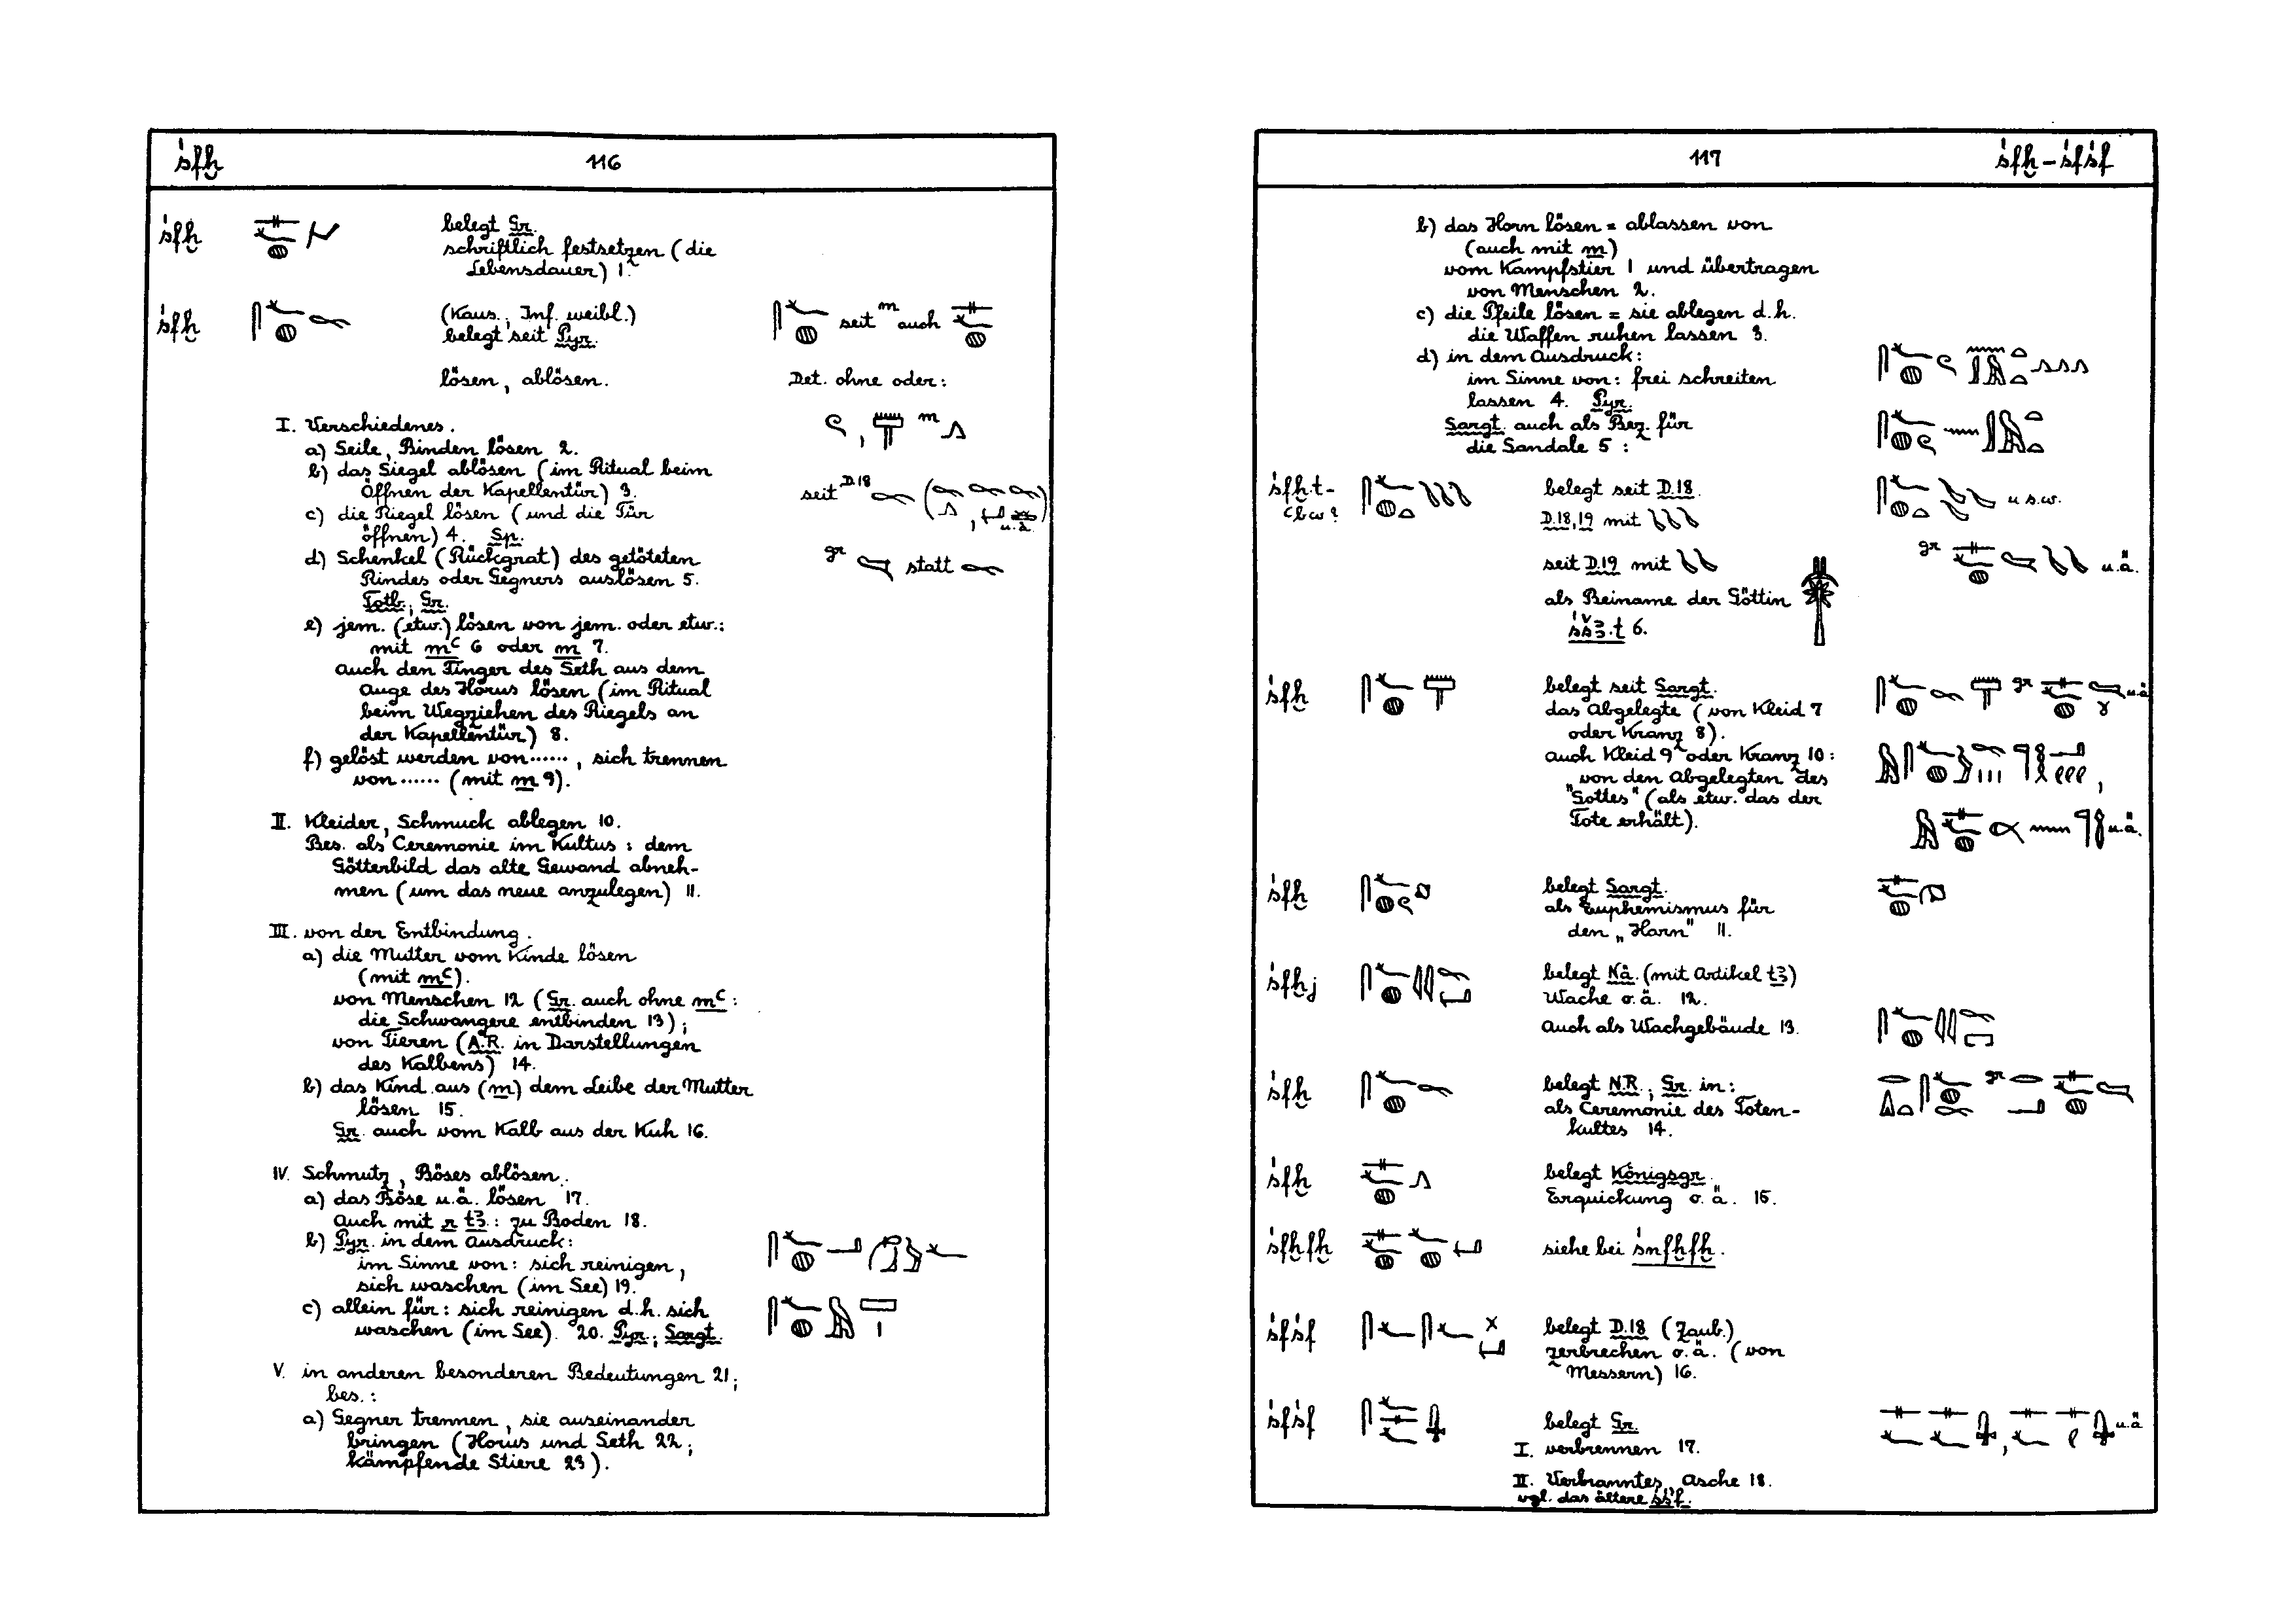 śfḫ
116
śfḫ
belegt Gr.
schriftlich festsetzen (die
Lebensdauer) 1.
śfḫ
(Kaus., Inf. weibl.)
belegt seit Pyr.
seit m auch
lösen, ablösen.
Det. ohne oder:
I. Verschiedenes.
, m
a) Seile, Binden lösen 2.
b) das Siegel ablösen (im Ritual beim
Öffnen der Kapellentür) 3.
seit D.18 ( , u.ä.)
c) die Riegel lösen (und die Tür
öffnen) 4. Sp.
d) Schenkel (Rückgrat) des getöteten
Rindes oder Gegners auslösen 5.
Totb.; Gr.
gr statt
e) jem. (etw.) lösen von jem. oder etw.:
mit mꜥ 6 oder m 7.
Auch den Finger des Seth aus dem
Auge des Horus lösen (im Ritual
beim Wegziehen des Riegels an
der Kapellentür) 8.
f) gelöst werden von ......, sich trennen
von ...... (mit m 9).
II. Kleider, Schmuck ablegen 10.
Bes. als Ceremonie im Kultus: dem
Götterbild das alte Gewand abneh-
men (um das neue anzulegen) 11.
III. von der Entbindung.
a) die Mutter vom Kinde lösen
(mit mꜥ).
von Menschen 12 (Gr. auch ohne mꜥ:
die Schwangere entbinden 13);
von Tieren (A.R. in Darstellungen
des Kalbens) 14.
b) das Kind aus (m) dem Leibe der Mutter
lösen 15.
Gr. auch vom Kalb aus der Kuh 16.
IV. Schmutz, Böses ablösen.
a) das Böse u.ä. lösen 17.
Auch mit r tꜣ: zu Boden 18.
b) Pyr. in dem Ausdruck:
im Sinne von: sich reinigen,
sich waschen (im See) 19.
c) allein für: sich reinigen d.h. sich
waschen (im See). 20. Pyr.; Sargt.
V. in anderen besonderen Bedeutungen 21;
bes.:
a) Gegner trennen, sie auseinander
bringen (Horus und Seth 22;
kämpfende Stiere 23).
117
śfḫ – śfśf
b) das Horn lösen = ablassen von
(auch mit m)
vom Kampfstier 1 und übertragen
von Menschen 2.
c) die Pfeile lösen = sie ablegen d.h.
die Waffen ruhen lassen 3.
d) in dem Ausdruck:
im Sinne von: frei schreiten
lassen 4. Pyr.
Sargt. auch als Bez. für
die Sandale 5:
śfḫ.t-
ꜥbw?
belegt seit D.18.
D.18,19 mit
u.s.w.
seit D.19 mit
gr u.ä.
als Beiname der Göttin
śšꜣ.t 6.
śfḫ
belegt seit Sargt.
gr u.ä.
das Abgelegte (von Kleid 7
oder Kranz 8).
auch Kleid 9 oder Kranz 10:
von den Abgelegten des
"Gottes" (als etw. das der
Tote erhält).
, u.ä.
śfḫ
belegt Sargt.
als Euphemismus für
den „Harn" 11.
śfḫj
belegt Nä. (mit Artikel tꜣ)
Wache o.ä. 12.
Auch als Wachgebäude 13.
śfḫ
belegt N.R.; Gr. in:
gr
als Ceremonie des Toten-
kultes 14.
śfḫ
belegt Königsgr.
Erquickung o.ä. 15.
śfḫfḫ
siehe bei śnfḫfḫ.
śfśf
belegt D.18 (Zaub.)
zerbrechen o.ä. (von
Messern) 16.
śfśf
belegt Gr.
, u.ä
I. verbrennen 17.
II. Verbranntes, Asche 18.
vgl. das ältere śśf.